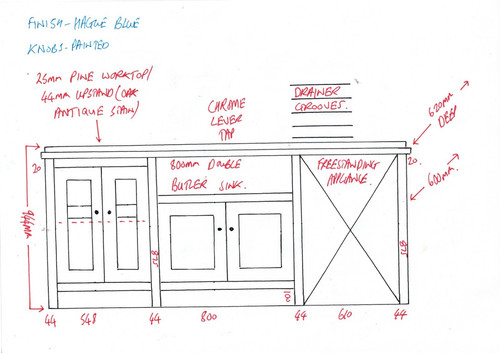 FINISH - HAGUE BLUE
KNOBS - PAINTED
25mm PINE WORKTOP/
44mm UPSTAND (OAK
ANTIQUE STAIN)
CHROME
LEVER
TAP
DRAINER
GROOVES.
620mm
DEEP
20
800mm DOUBLE
BUTLER SINK.
FREESTANDING
APPLIANCE.
20.
600mm.
SLB
SLB
44 548 44 800 44 610 44